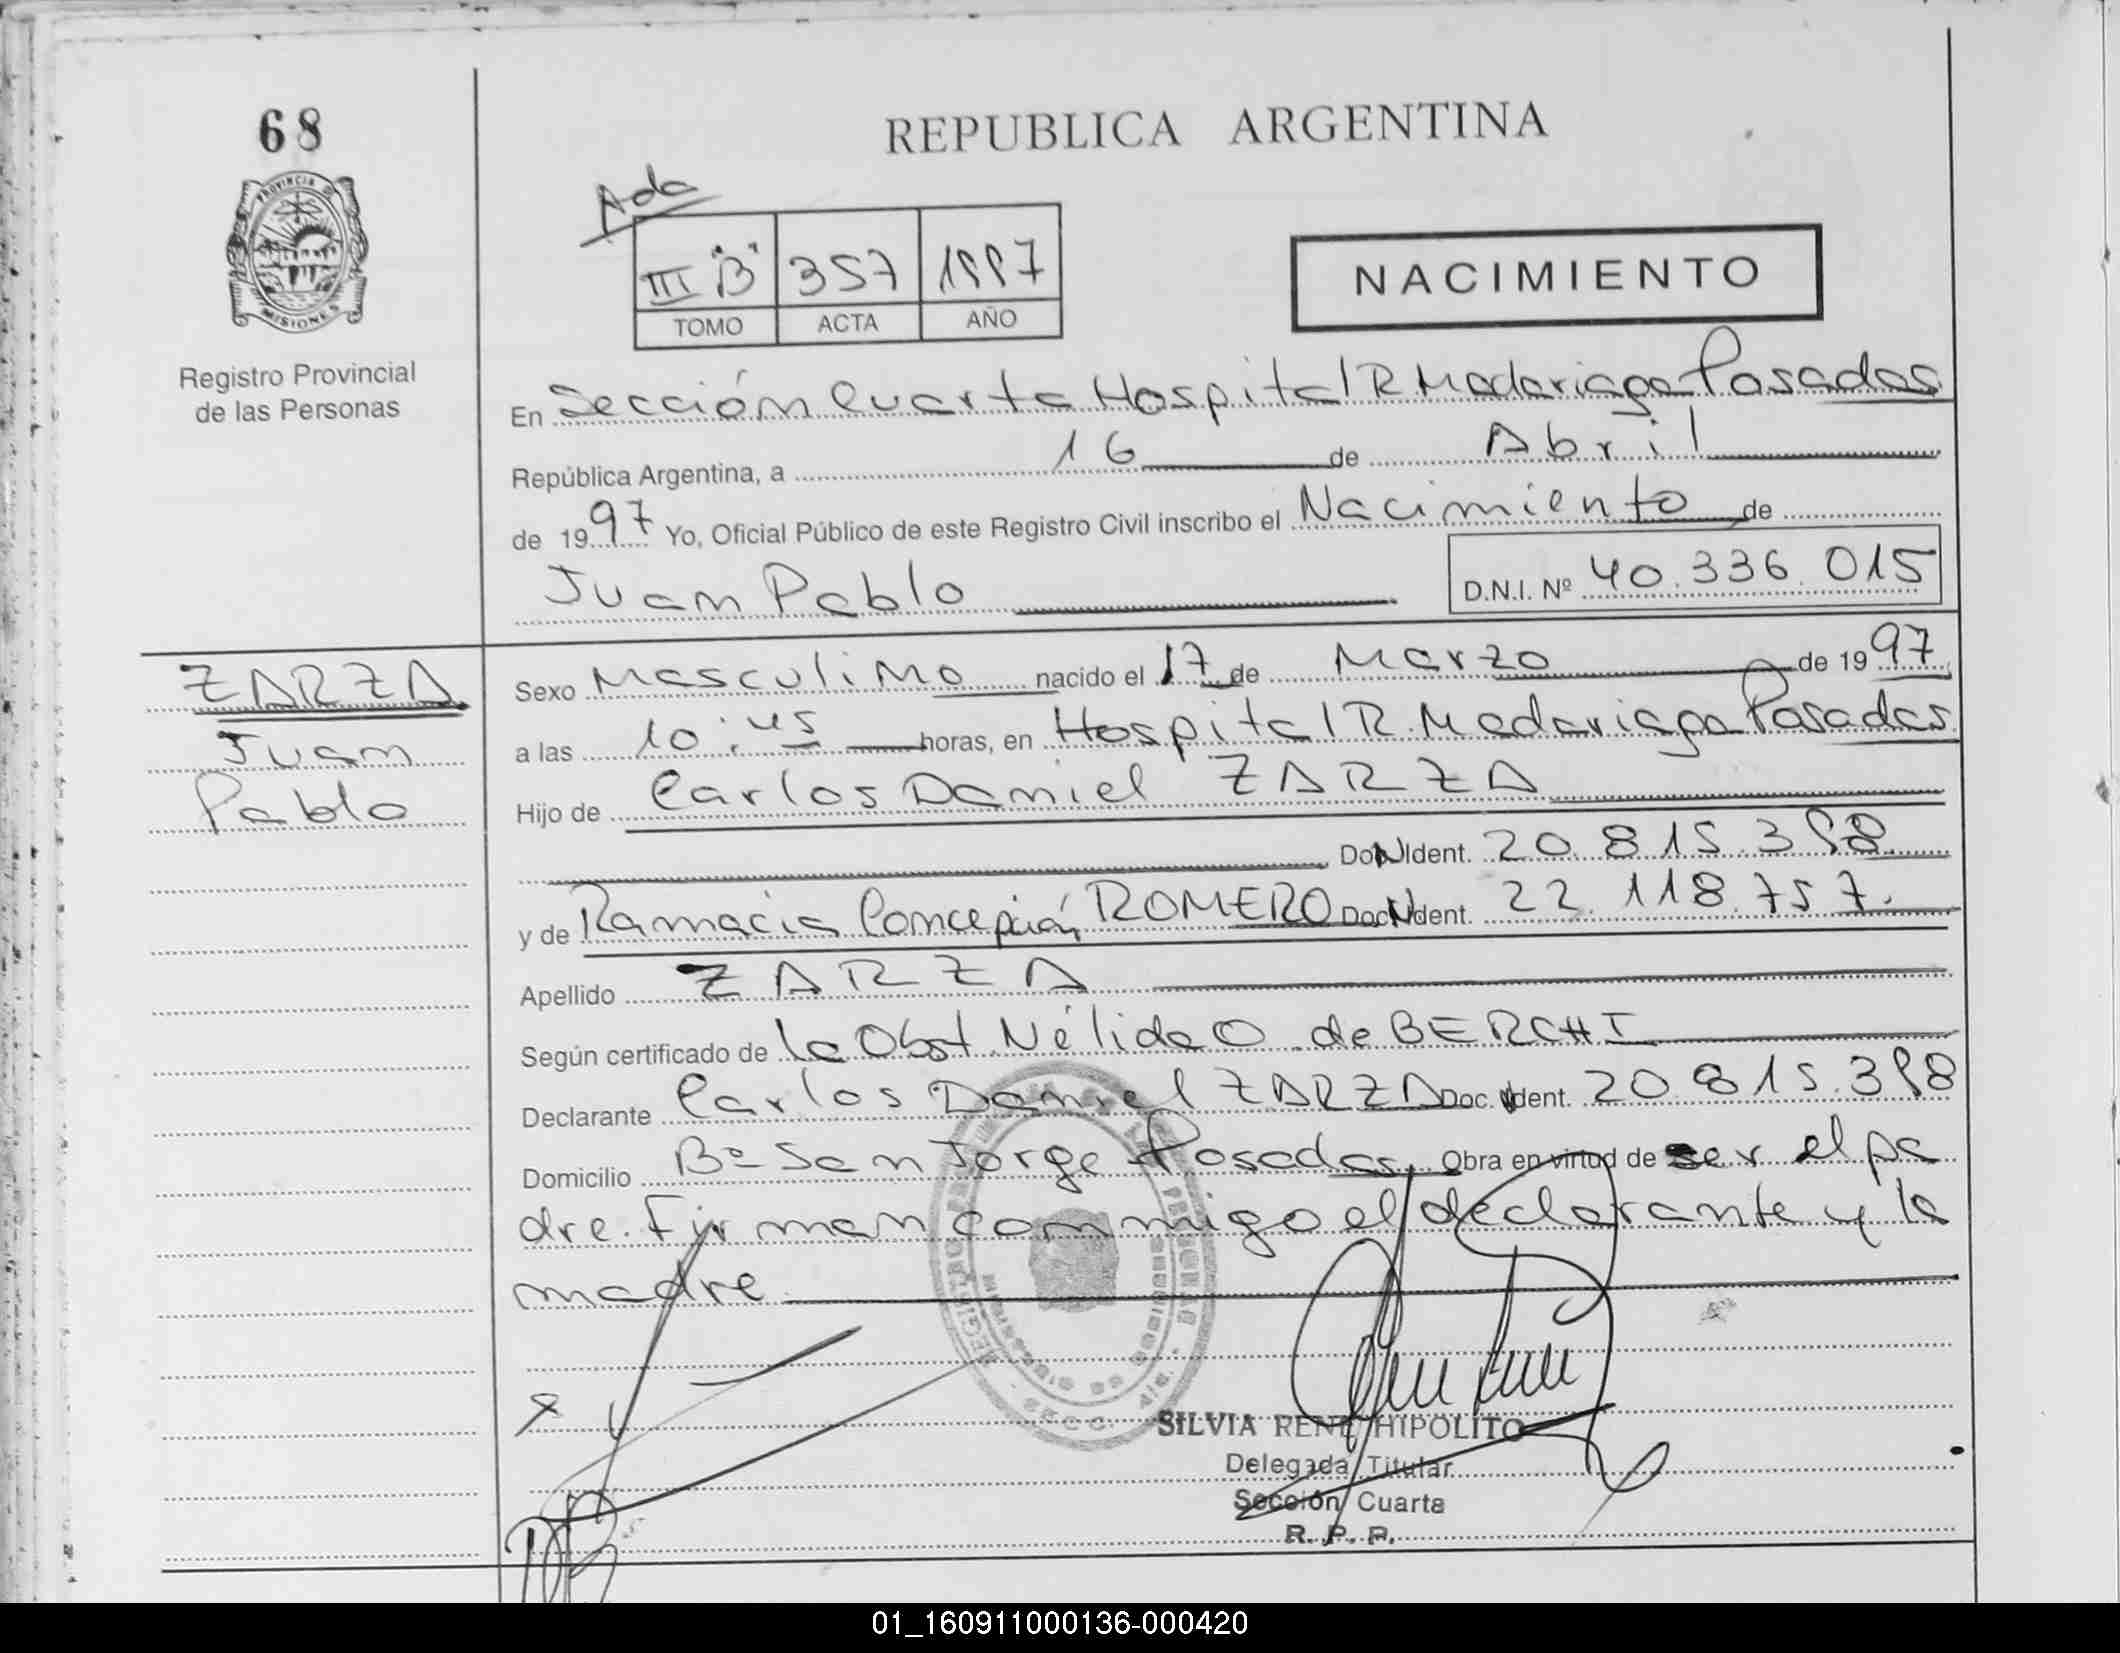 68
REPUBLICA ARGENTINA
PROVINCIA DE
MISIONES
Registro Provincial
de las Personas
Ada
III "B" 357 1997
TOMO ACTA AÑO
NACIMIENTO
En Sección Cuarta Hospital R Madariaga Posadas
República Argentina, a 16 de Abril
de 1997 Yo, Oficial Público de este Registro Civil inscribo el Nacimiento de
Juan Pablo D.N.I. Nº 40.336.015
ZARZA
Juan
Pablo
Sexo Masculino nacido el 17 de Marzo de 1997
a las 10:45 horas, en Hospital R. Madariaga Posadas
Hijo de Carlos Daniel ZARZA
Ident. 20.815.398
y de Concepción ROMERO Ident. 22.118.757.
Apellido ZARZA
Según certificado de la Obst. Nélida O. de BERCHI
Declarante Carlos Daniel ZARZA Doc. Ident. 20.815.398
Domicilio Bº San Jorge Posadas Obra en virtud de ser el pa
dre. Firman conmigo el declarante y la
madre
SILVIA RENE HIPOLITO
Delegada Titular
Sección Cuarta
R. P. P.
01_160911000136-000420